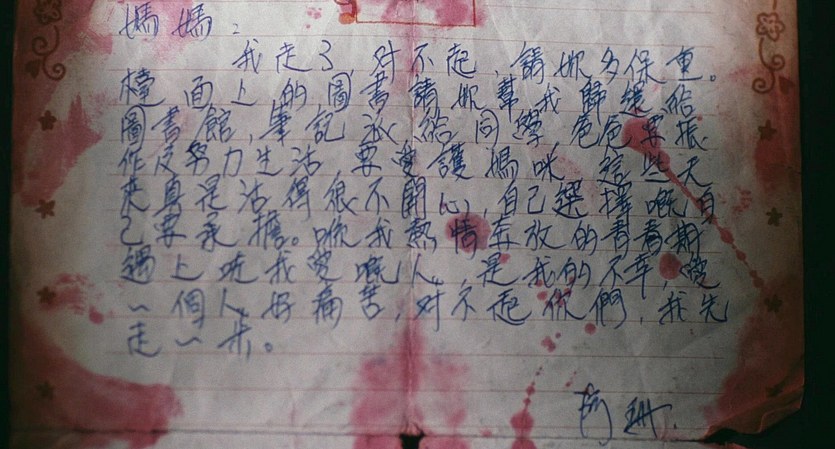 媽媽：
我走了，对不起，請妳多保重。
檯面上的圖書請妳幫我歸還給
圖書館，筆記派給同學，爸爸要振
作及努力生活，要愛護媽咪，這些天
來真是活得很不開心，自己選擇嘅自
己要承擔。喺我熱情奔放的青春期
遇上咗我愛嘅人，是我的不幸，愛
一個人好痛苦，对不起你們，我先
走一步。
阿珊.